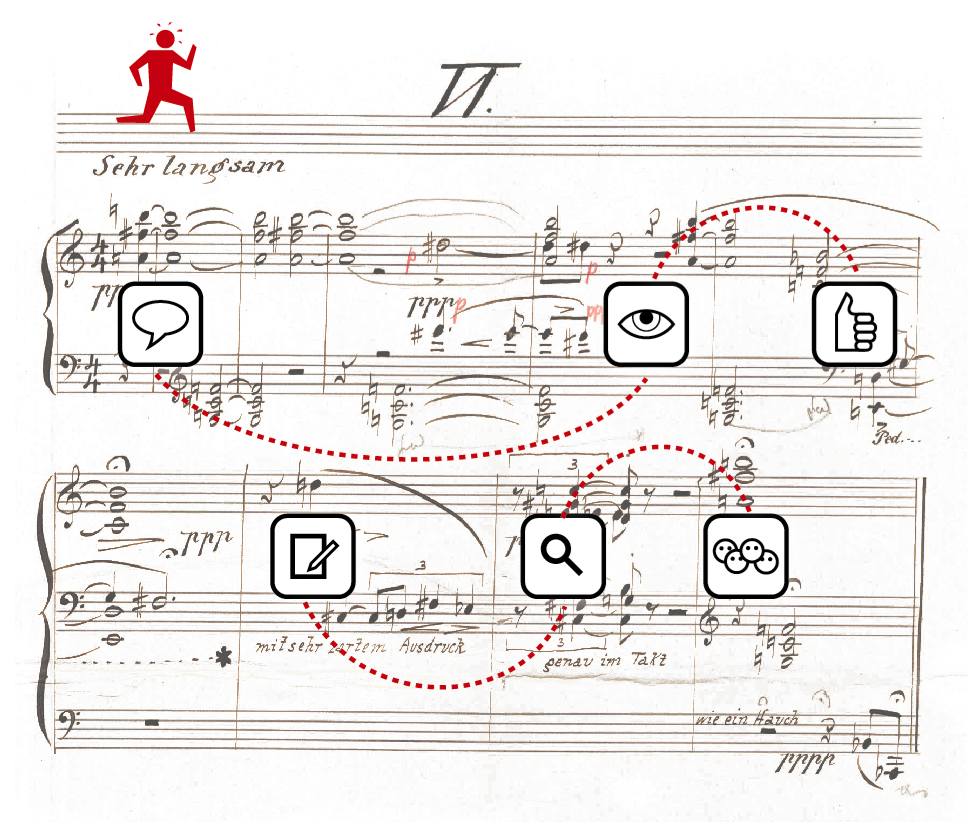 VI.
Sehr langsam
4 4
p
p
pp
ppp
p
pp
4 4
Ped....
3
ppp
3
mit sehr zartem Ausdruck
3
genau im Takt
wie ein Hauch
pppp